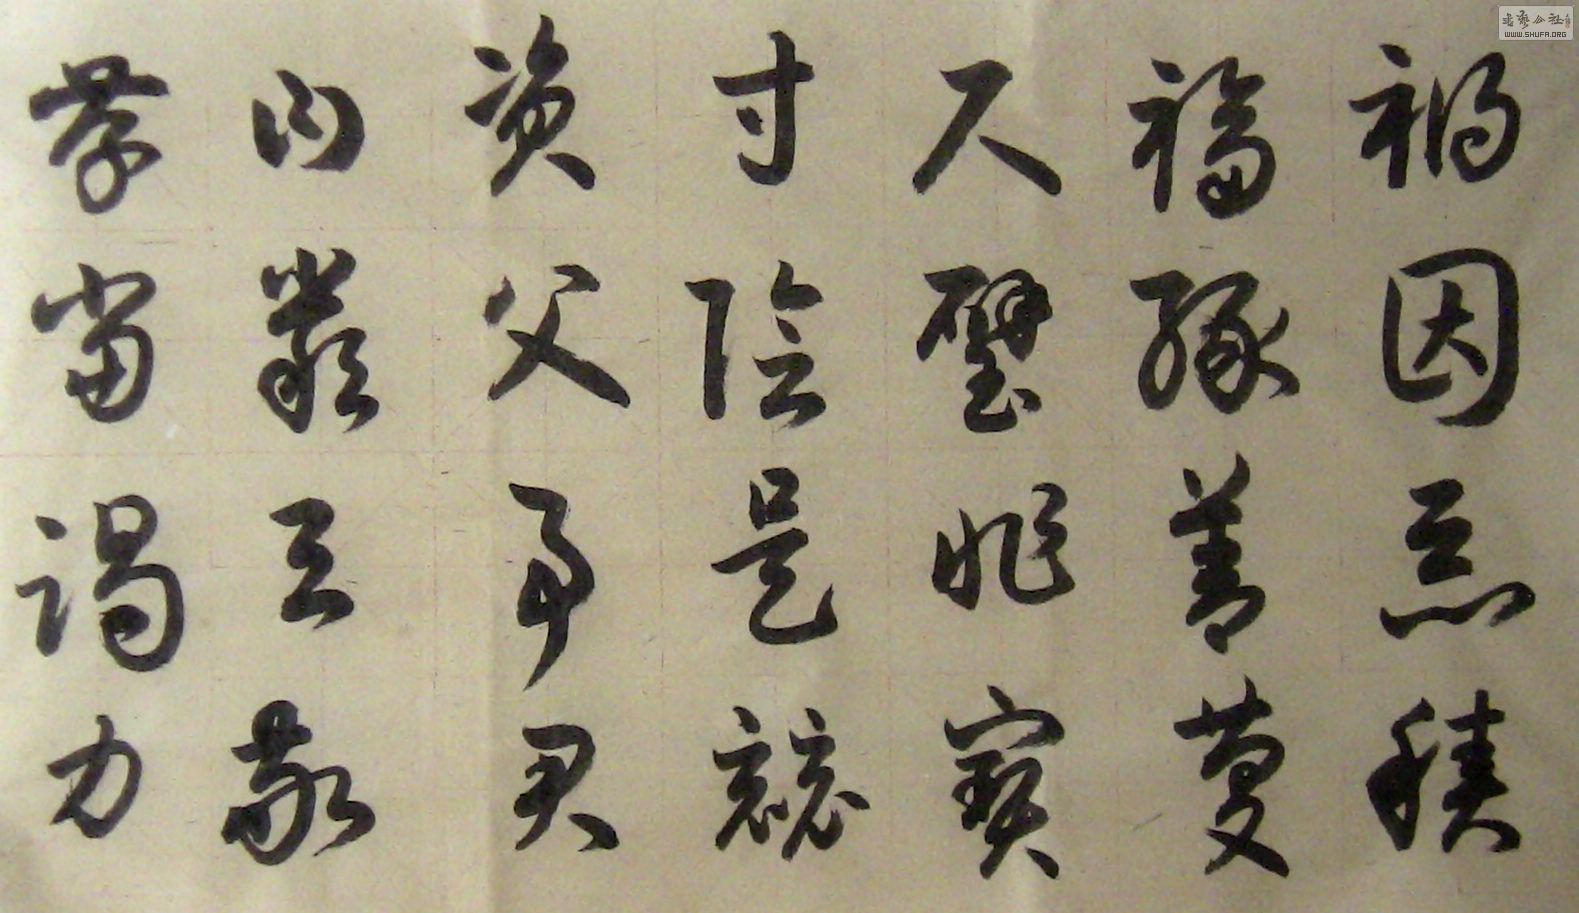 禍因惡積
福緣善慶
尺璧非寶
寸陰是競
資父事君
曰嚴與敬
孝當竭力
书艺公社
WWW.SHUFA.ORG